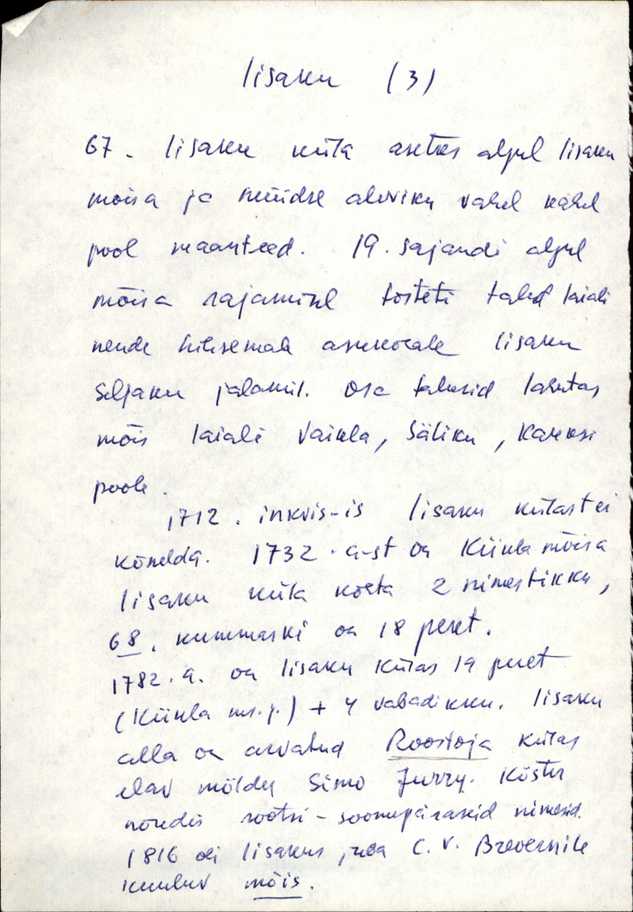 Iisaku (3)
67. Iisaku küla asetses algul Iisaku
mõisa ja nüüdse aleviku vahel kahel
pool maanteed. 19. sajandi algul
mõisa rajamisel tõsteti talud laiali
nende hilisemale asukohale Iisaku
Seljaku jalamil. Osa talusid lahutas
mõis laiali Vaikla, Sälliku, Kareksi
poole.
1712. inkvis-is Iisaku külast ei
kõnelda. 1732. a-st on Kiikla mõisa
Iisaku küla kohta 2 nimestikku,
68. kummaski on 18 peret.
1782. a. on Iisaku külas 19 peret
(Kiikla ms. j.) + 4 vabadikku. Iisaku
alla on arvatud Roostoja külas
elav mölder Simo Jurry. Köster
noudis rootsi-soomepäraseid nimesid.
1816 oli Iisakus juba C. v. Brevernile
kuuluv mõis.